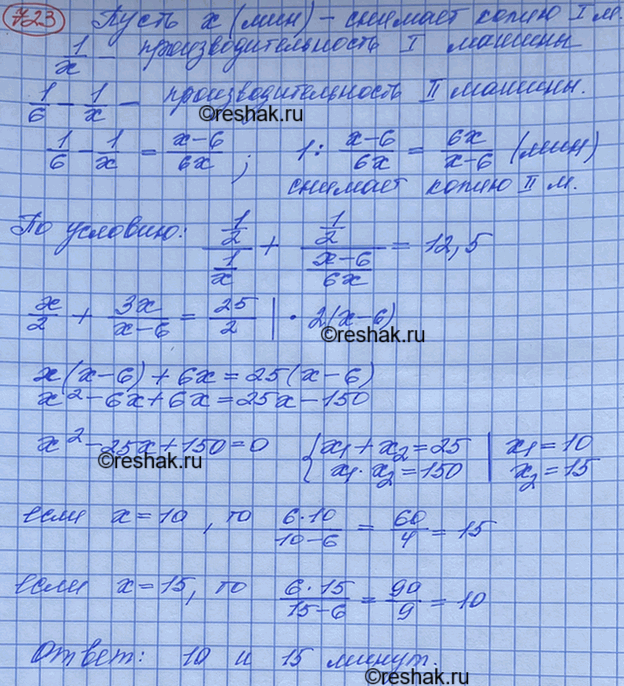 723 Пусть x (мин) – снимает копию I м.
1/x – производительность I машины
1/6 – 1/x – производительность II машины.
©reshak.ru
1/6 – 1/x = (x–6)/6x ; 1 : (x–6)/6x = 6x/(x–6) (мин)
снимает копию II м.
По условию: (1/2)/(1/x) + (1/2)/((x–6)/6x) = 12,5
x/2 + 3x/(x–6) = 25/2 | · 2(x–6)
©reshak.ru
x(x–6) + 6x = 25(x–6)
x² – 6x + 6x = 25x – 150
x² – 25x + 150 = 0 { x₁ + x₂ = 25 | x₁ = 10
x₁ · x₂ = 150 | x₂ = 15
©reshak.ru
если x = 10, то (6·10)/(10–6) = 60/4 = 15
если x = 15, то (6·15)/(15–6) = 90/9 = 10
Ответ: 10 и 15 минут.
©reshak.ru